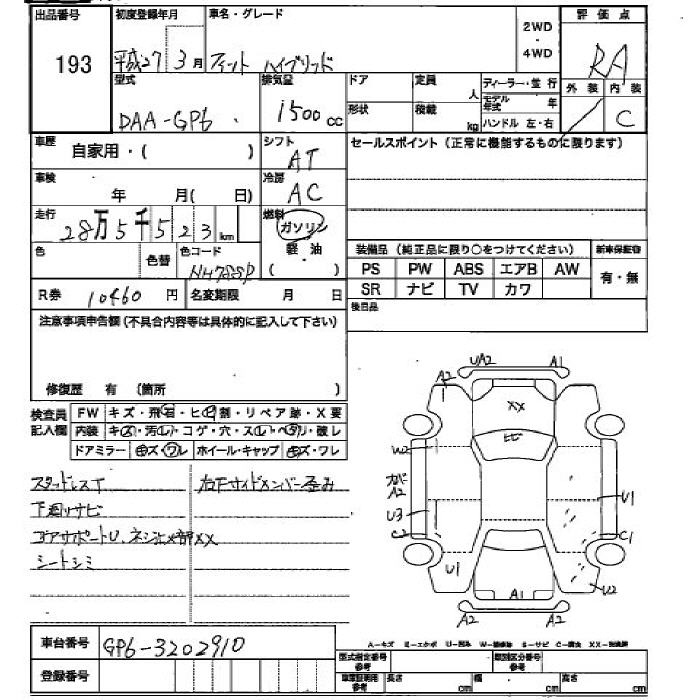 出品番号 初度登録年月 車名・グレード 2WD・4WD 評価点
193 平成27 3月 フィット ハイブリッド RA
型式 排気量 ドア 定員 人 ディーラー・並行 外装 内装
DAA-GP6 1500cc 形状 積載 kg モデル年式 年 ハンドル 左・右 C
車歴 自家用・( ) シフト AT セールスポイント(正常に機能するものに限ります)
車検 年 月( 日) 冷房 AC
走行 28万5千523km 燃料 ガソリン
色 色替 色コード NH788SP 軽油・( ) 装備品(純正品に限り○をつけてください) 新車保証書
PS PW ABS エアB AW 有・無
R券 10460円 名変期限 月 日 SR ナビ TV カワ
注意事項申告欄(不具合内容等は具体的に記入して下さい) 後日品
修復歴 有 (箇所 )
検査員記入欄 FW キズ・飛石・ヒビ割・リペア跡・X要
内装 キズ・汚レ・コゲ・穴・スレ・ヘタリ・破レ
ドアミラー キズ・ワレ ホイール・キャップ キズ・ワレ
スタッドレスT 右Fサイドメンバー歪み
下廻りサビ
コアサポートU、ネジ止メ部XX
シートシミ
UA2 A1
A2
XX
ヒビ
W2
カバーA2
U3 U1
C2 C1
U1 U2
A1
A2 A2
車台番号 GP6-3202910
A−キズ E−エクボ U−凹み W−補修跡 S−サビ C−腐食 XX−交換済
登録番号 型式指定番号 参考 類別区分番号 参考
車庫証明用 参考 長さ cm 幅 cm 高さ cm